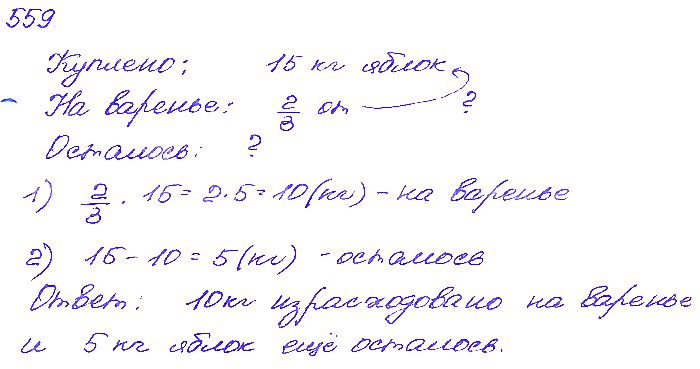 559
Куплено: 15 кг яблок
- На варенье: 2/3 от ?
Осталось: ?
1) 2/3 · 15 = 2·5 = 10 (кг) - на варенье
2) 15 - 10 = 5 (кг) - осталось
Ответ: 10 кг израсходовано на варенье
и 5 кг яблок ещё осталось.